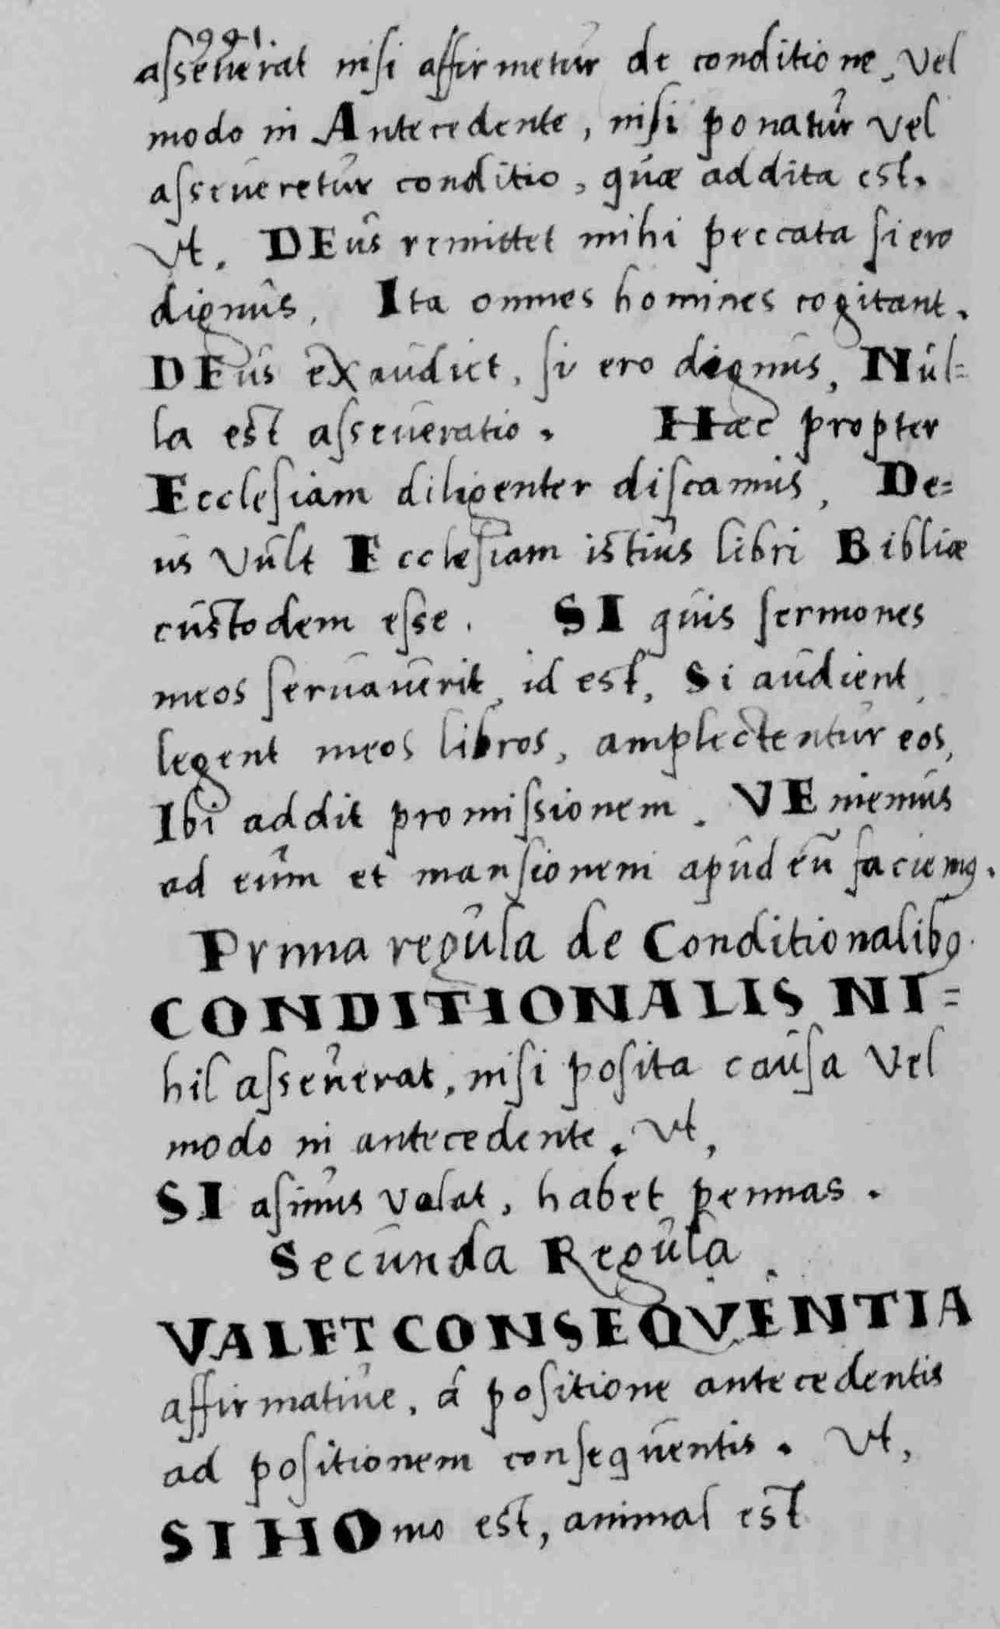 991.
asseuerat nisi affirmetur de conditione, Vel
modo in Antecedente, nisi ponatur vel
asseueretur conditio, quæ addita est.
Vt. DEus remittet mihi peccata si ero
dignus. Ita omnes homines cogitant.
DEus exaudiet, si ero dignus, Nul=
la est asseueratio. Hæc propter
Ecclesiam diligenter discamus, De=
us Vult Ecclesiam istius libri Bibliæ
custodem esse. SI quis sermones
meos seruauerit, id est, Si audient,
legent meos libros, amplectentur eos,
Ibi addit promissionem. VEniemus
ad eum et mansionem apud eū faciemꝰ.
Prima regula de Conditionalibꝰ.
CONDITIONALIS NI=
hil asseuerat, nisi posita causa Vel
modo in antecedente. Vt,
SI asinus volat, habet pennas.
Secunda Regula
VALET CONSEQVENTIA
affirmatiue, á positione antecedentis
ad positionem consequentis. Vt,
SI HOmo est, animal est